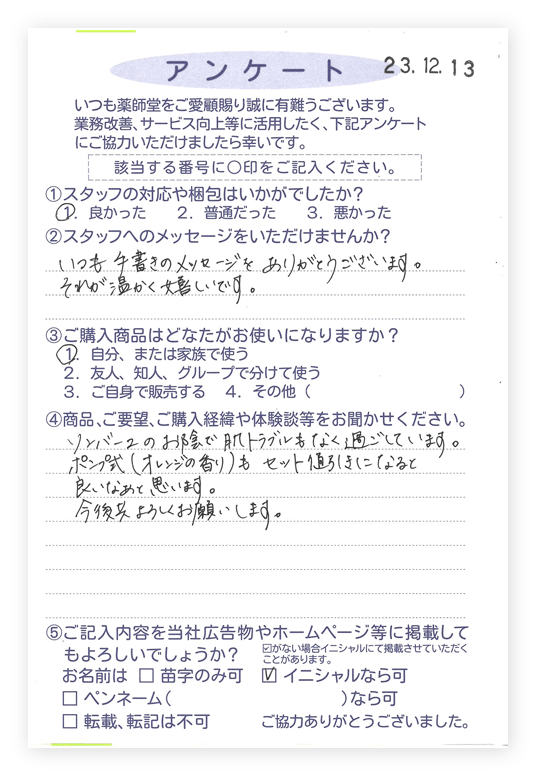 アンケート 23.12.13
いつも薬師堂をご愛顧賜り誠に有難うございます。
業務改善、サービス向上等に活用したく、下記アンケート
にご協力いただけましたら幸いです。
該当する番号に〇印をご記入ください。
①スタッフの対応や梱包はいかがでしたか?
1. 良かった 2. 普通だった 3. 悪かった
②スタッフへのメッセージをいただけませんか?
いつも手書きのメッセージをありがとうございます。
それが温かく嬉しいです。
③ご購入商品はどなたがお使いになりますか?
1. 自分、または家族で使う
2. 友人、知人、グループで分けて使う
3. ご自身で販売する 4. その他( )
④商品、ご要望、ご購入経緯や体験談等をお聞かせください。
ソンバーユのお陰で肌トラブルもなく過ごしています。
ポンプ式(オレンジの香り)もセット値引きになると
良いなぁと思います。
今後共よろしくお願いします。
⑤ご記入内容を当社広告物やホームページ等に掲載して
もよろしいでしょうか? ☑がない場合イニシャルにて掲載させていただく
ことがあります。
お名前は □ 苗字のみ可 ☑ イニシャルなら可
□ ペンネーム( )なら可
□ 転載、転記は不可 ご協力ありがとうございました。